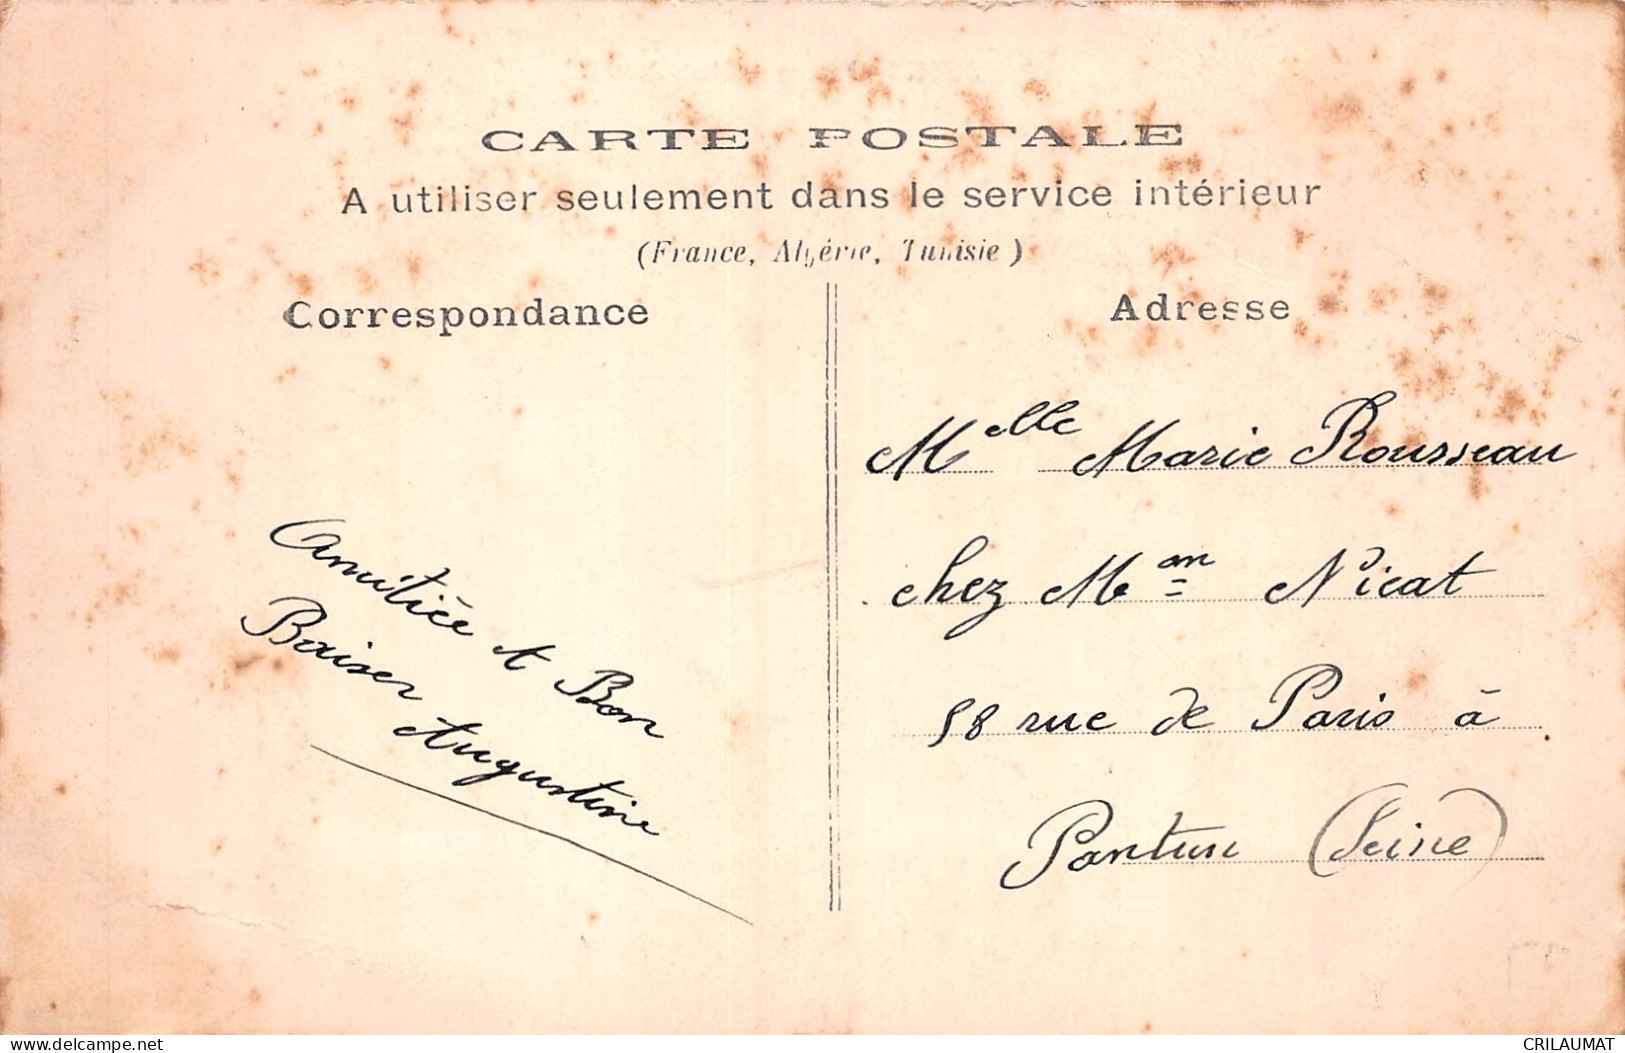 CARTE POSTALE
A utiliser seulement dans le service intérieur
(France, Algérie, Tunisie)
Correspondance
Adresse
Amitiée et Bon
Baiser
Augustine
Melle Marie Rousseau
chez Mon Nicat
58 rue de Paris à
Pantin (Seine)
CRILAUMAT